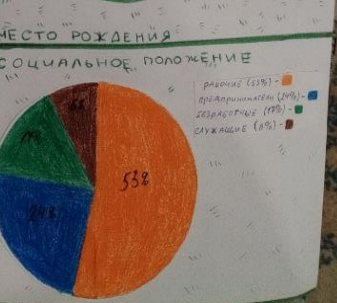 МЕСТО РОЖДЕНИЯ
СОЦИАЛЬНОЕ ПОЛОЖЕНИЕ
РАБОЧИЕ (53%) -
ПРЕДПРИНИМАТЕЛИ (24%) -
БЕЗРАБОТНЫЕ
СЛУЖАЩИЕ
53%
24%